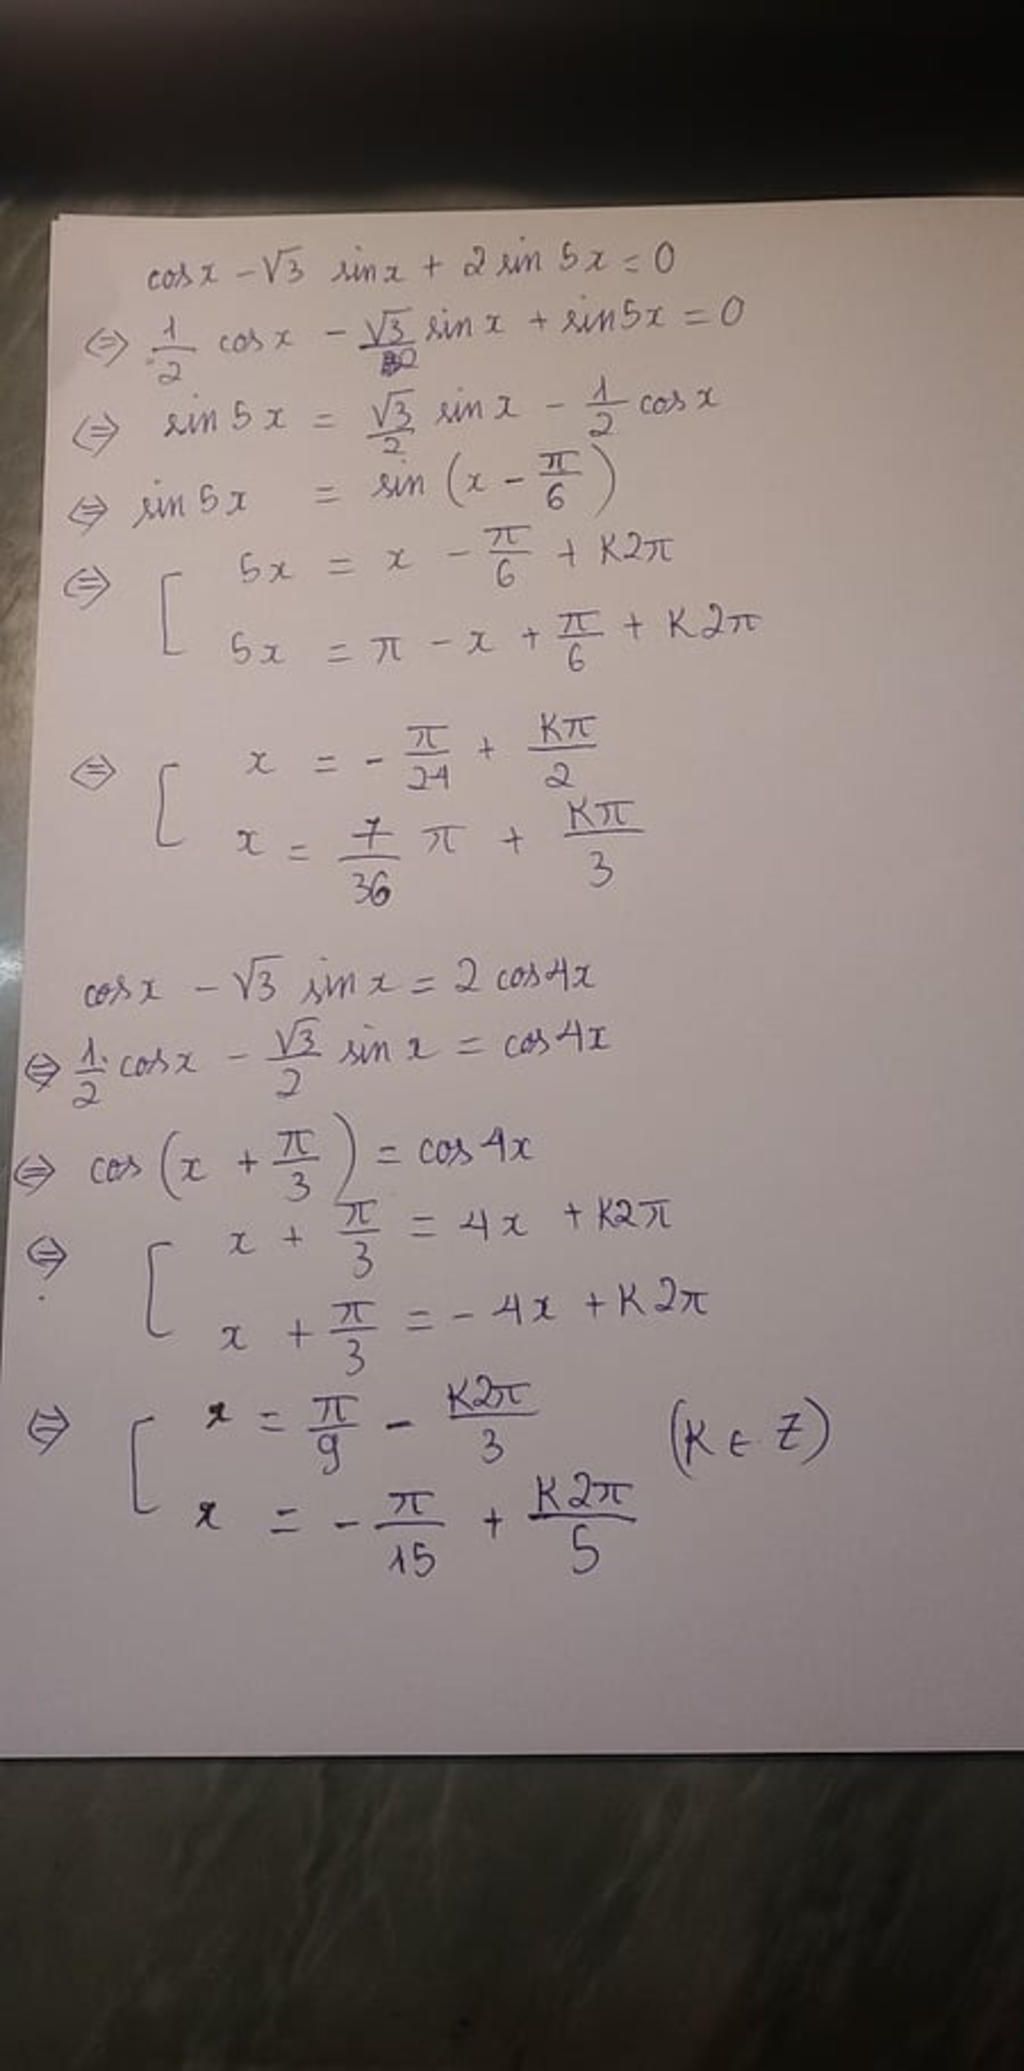 cosx - √3 sinx + 2 sin 5x = 0
⇔ 1/2 cosx - √3/2 sinx + sin5x = 0
⇔ sin 5x = √3/2 sinx - 1/2 cosx
⇔ sin 5x = sin (x - π/6)
⇔ [ 5x = x - π/6 + K2π
5x = π - x + π/6 + K2π
⇔ [ x = - π/24 + Kπ/2
x = 7/36 π + Kπ/3
cosx - √3 sinx = 2 cos4x
⇔ 1/2 cosx - √3/2 sinx = cos4x
⇔ cos (x + π/3) = cos 4x
⇔ [ x + π/3 = 4x + K2π
x + π/3 = - 4x + K2π
⇔ [ x = π/9 - K2π/3 (K ∈ Z)
x = - π/15 + K2π/5